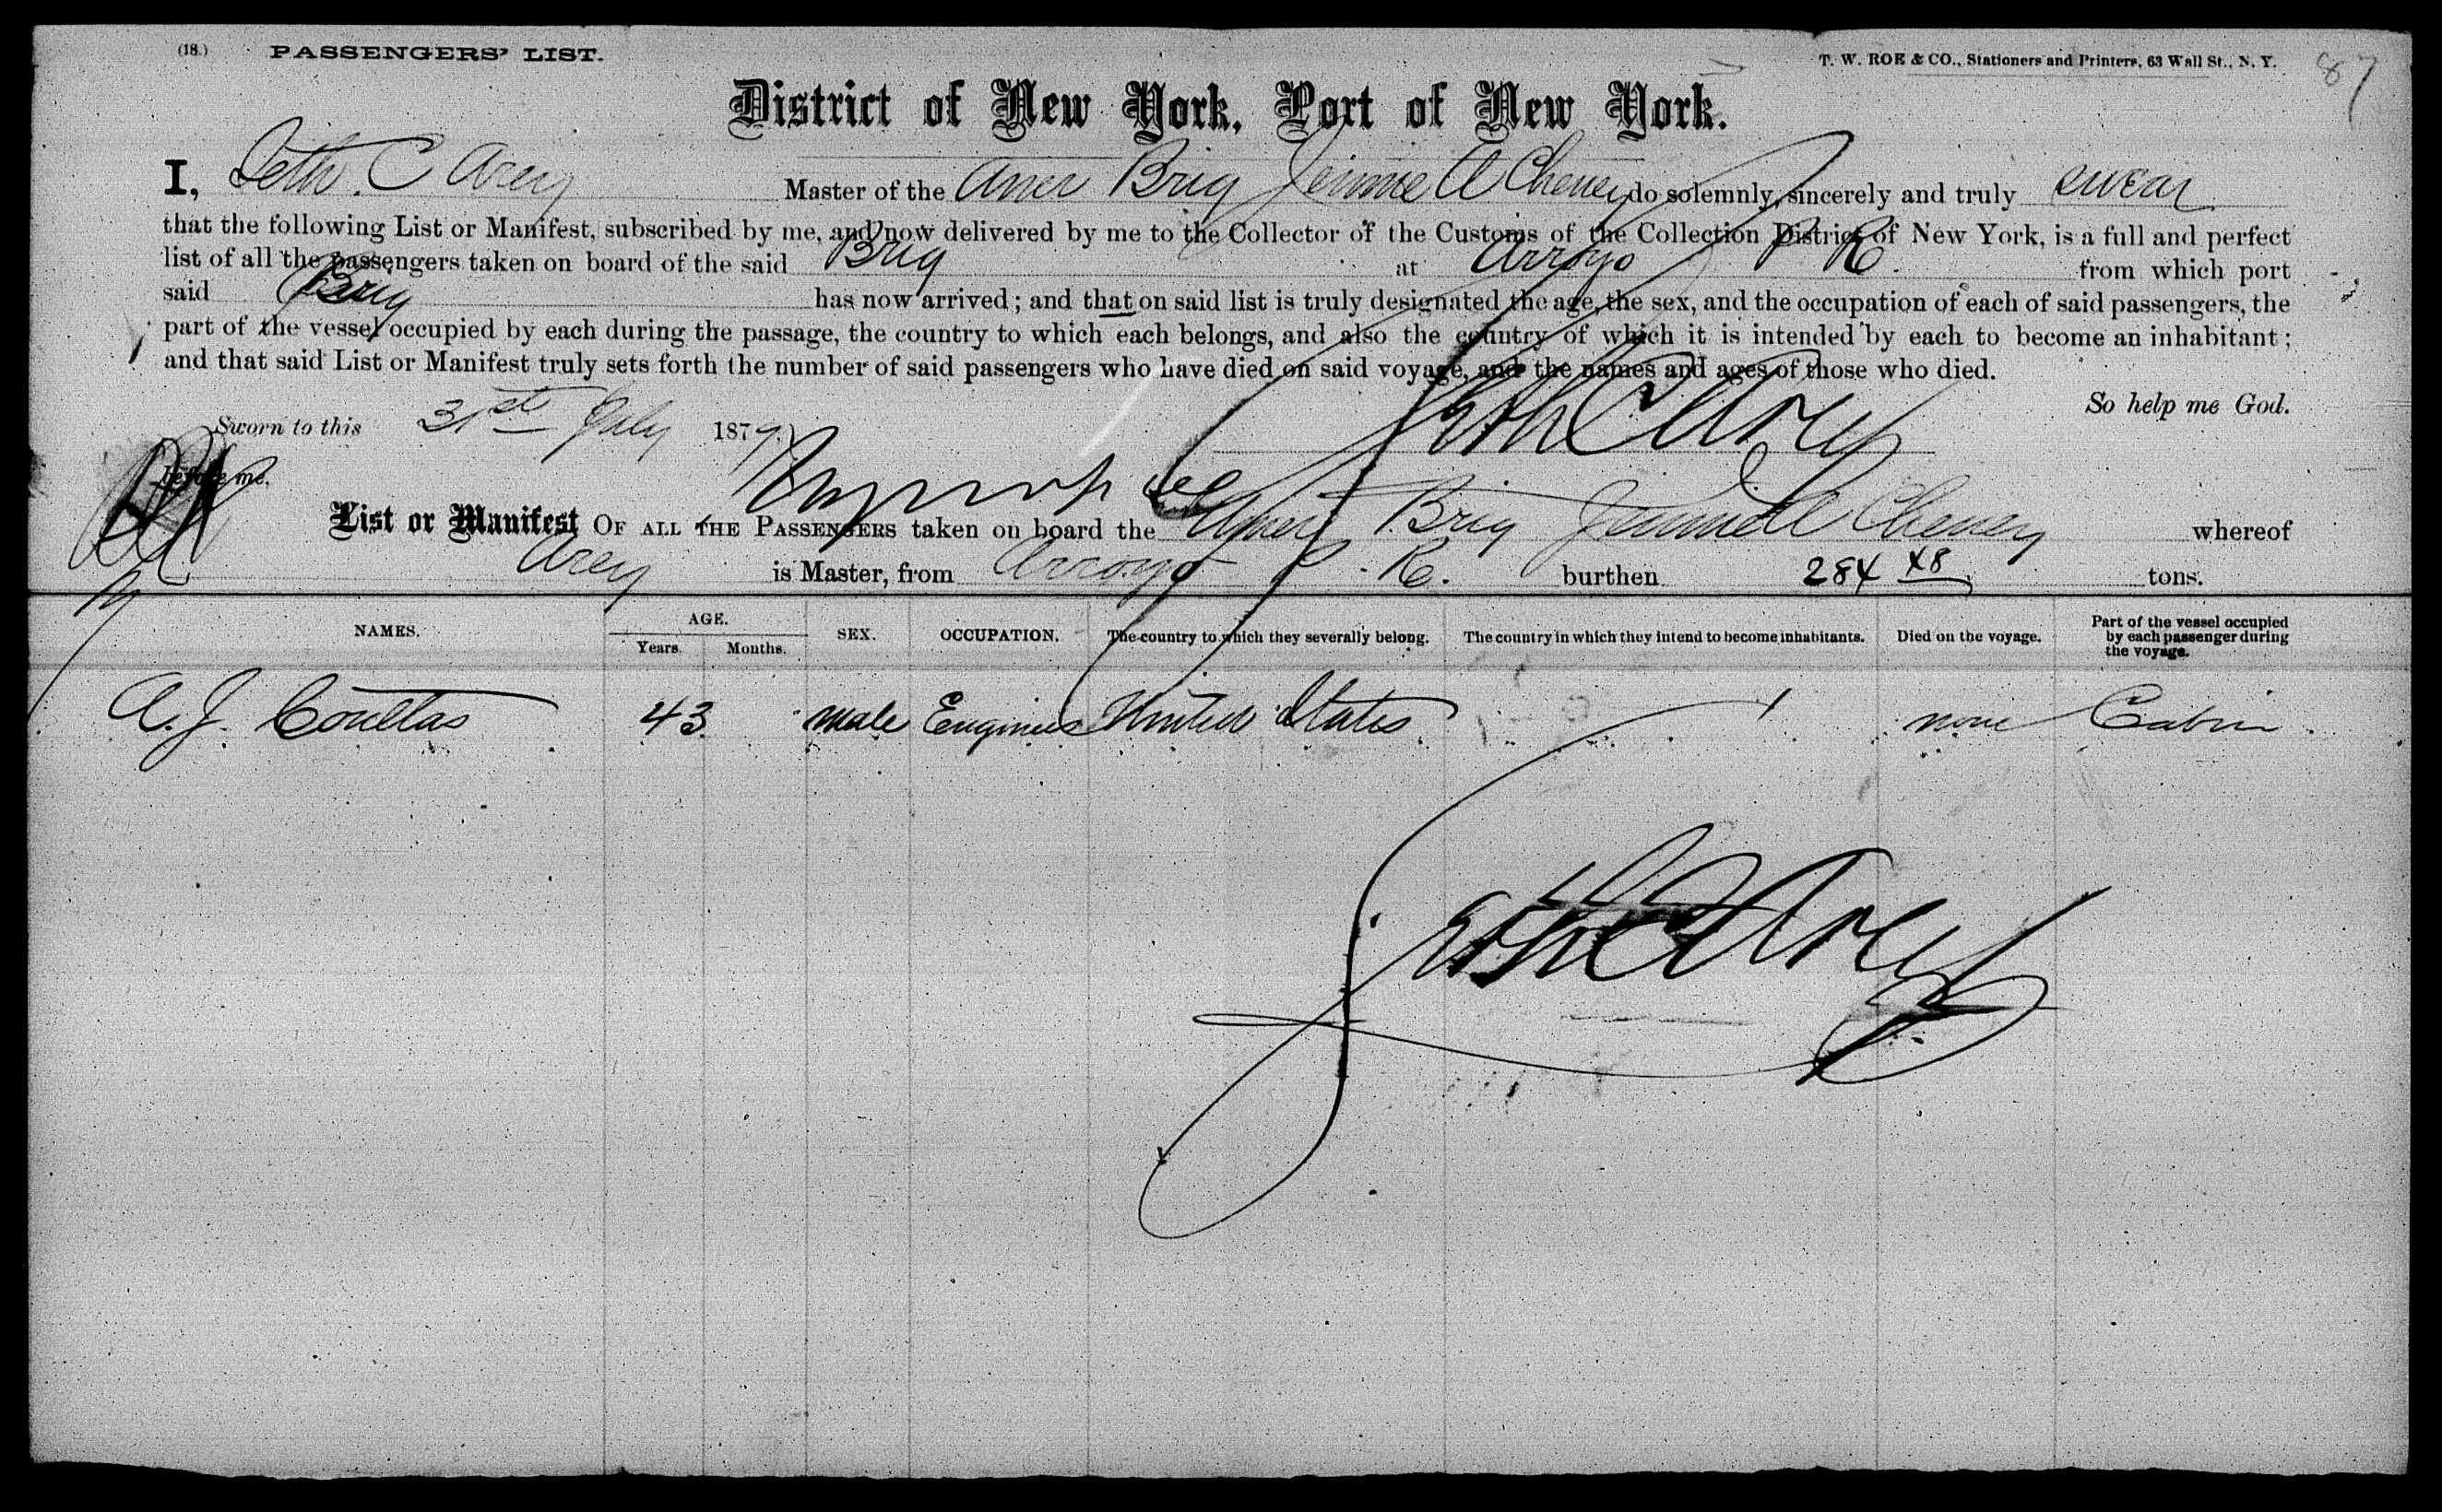 (18.) PASSENGERS' LIST. T. W. ROE & CO., Stationers and Printers, 63 Wall St., N. Y. 87
District of New York, Port of New York.
I, Seth C Arey Master of the Amer Brig Jennie A Cheney do solemnly, sincerely and truly swear
that the following List or Manifest, subscribed by me, and now delivered by me to the Collector of the Customs of the Collection District of New York, is a full and perfect
list of all the passengers taken on board of the said Brig at Arroyo P. R. from which port
said Brig has now arrived; and that on said list is truly designated the age, the sex, and the occupation of each of said passengers, the
part of the vessel occupied by each during the passage, the country to which each belongs, and also the country of which it is intended by each to become an inhabitant;
and that said List or Manifest truly sets forth the number of said passengers who have died on said voyage, and the names and ages of those who died.
So help me God.
Sworn to this 31st July 1879. Seth C Arey
before me.
List or Manifest OF ALL THE PASSENGERS taken on board the Amer Brig Jennie A Cheney whereof
Arey is Master, from Arroyo P. R. burthen 284 48 tons.
NAMES. AGE. Years. Months. SEX. OCCUPATION. The country to which they severally belong. The country in which they intend to become inhabitants. Died on the voyage. Part of the vessel occupied by each passenger during the voyage.
A. J. Coultas 43 male Engineer United States none Cabin
Seth C Arey